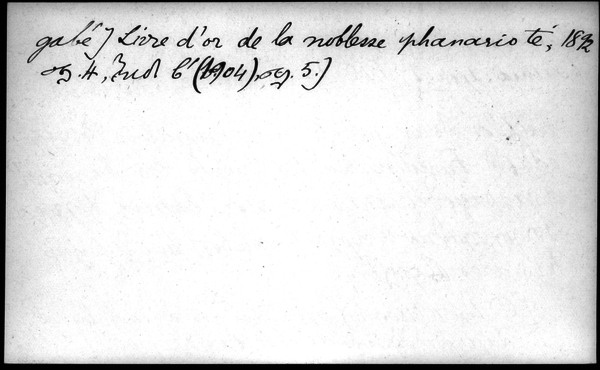 gabé] Livre d'or de la noblesse phanariote, 1892
σγ. 4, ἔκδ β' (1904), σγ. 5.]